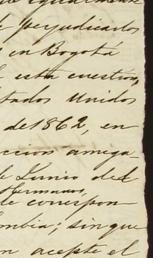 perjudicarlos
en Bogotá
esta cuestion,
tados Unidos
del 1862, en
ccion amiga-
de Junio del
Hermanos,
le correspon-
ombia; sin que
n acepte el